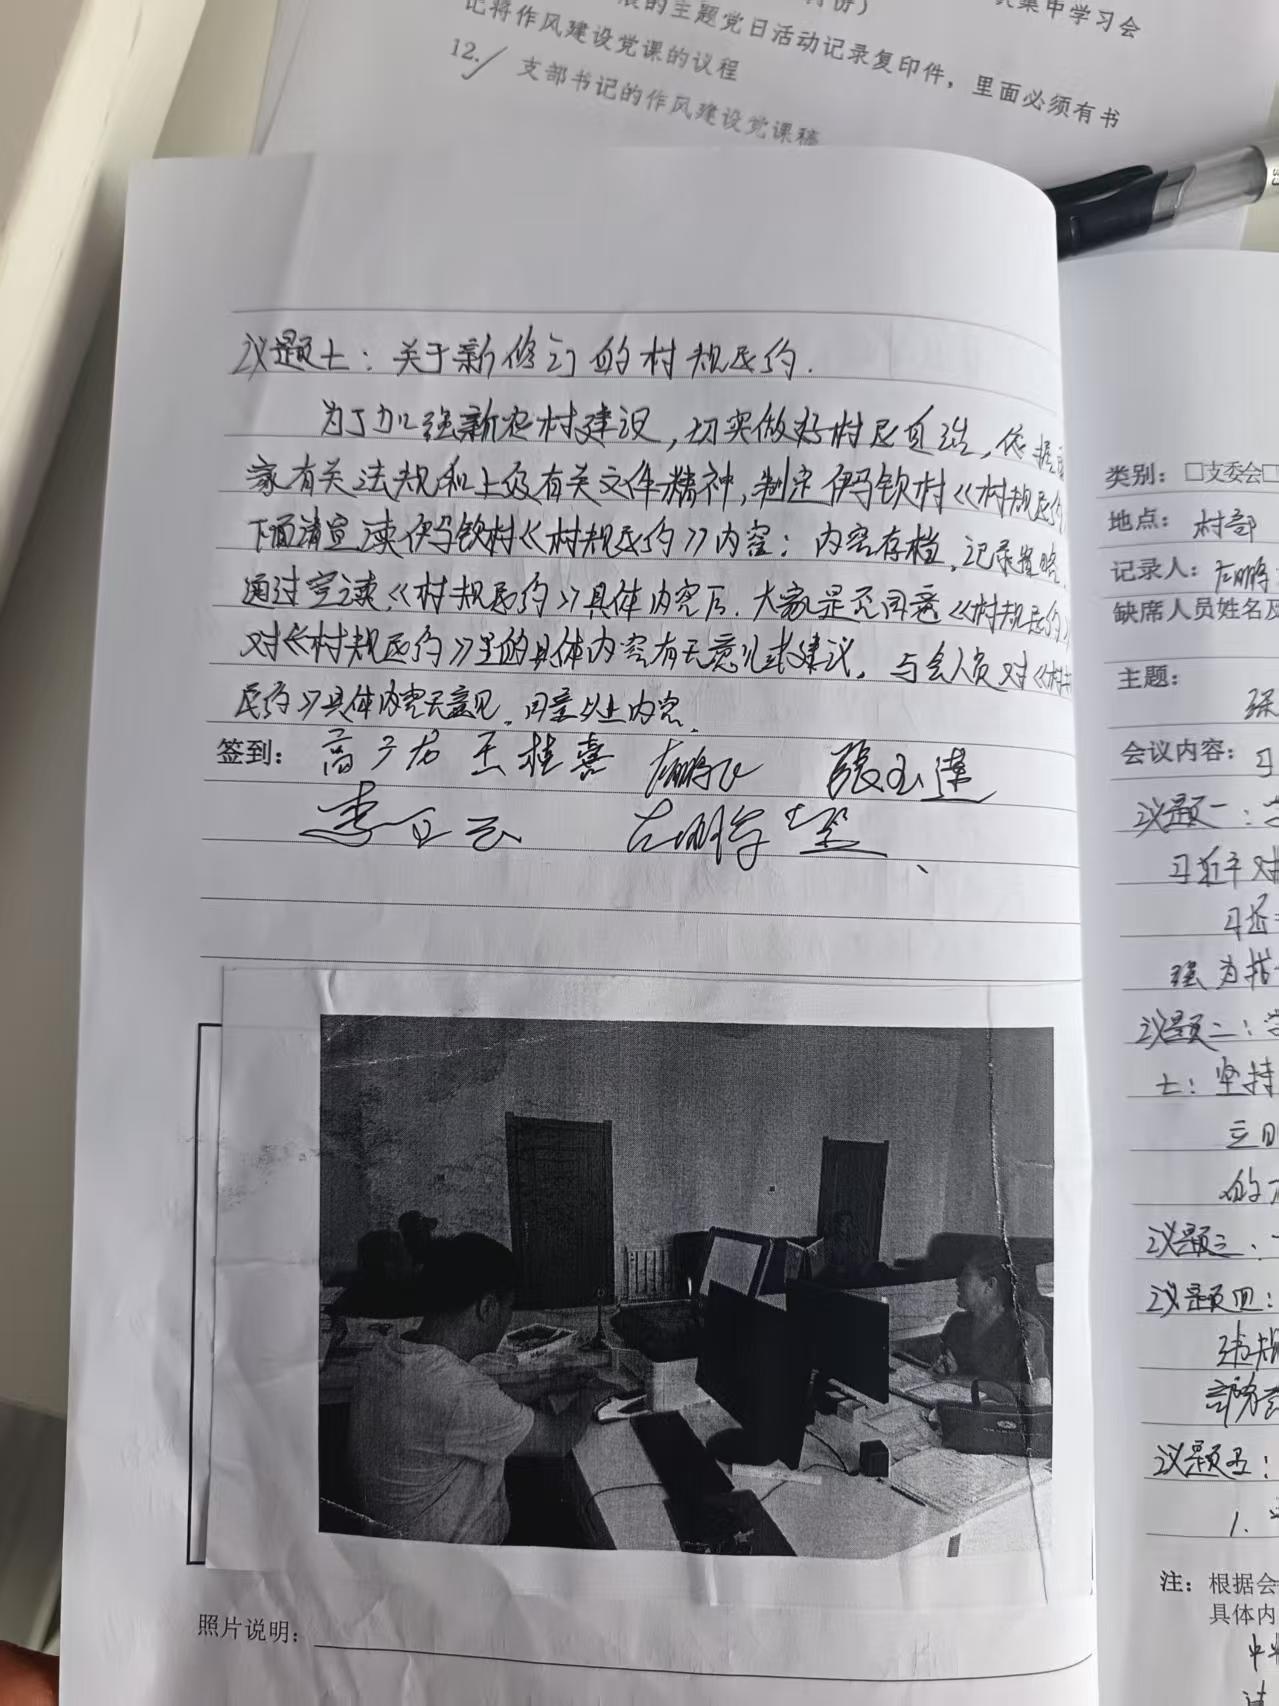 集中学习会
展的主题党日活动记录复印件，里面必须有书
记将作风建设党课的议程
12. 支部书记的作风建设党课稿
议题七：关于新修订的村规民约.
为了加强新农村建设，切实做好村民自治，依据
家有关法规和上级有关文件精神，制定伊马钦村《村规民约
下面请宣读伊马钦村《村规民约》内容：内容存档，记录省略.
通过宣读《村规民约》具体内容后，大家是否同意《村规民约》
对《村规民约》里的具体内容有无意见或建议，与会人员对《村规
民约》具体内容无意见，同意以上内容.
签到：
王桂喜
張玉達
照片说明：
类别：□支委会□
地点：村部
记录人：
缺席人员姓名及
主题：
会议内容：习
议题一：学
习近平对
强为指
议题二：学
七：坚持
的
议题三、
议题四：
议题五：
1.
注：根据会
具体内